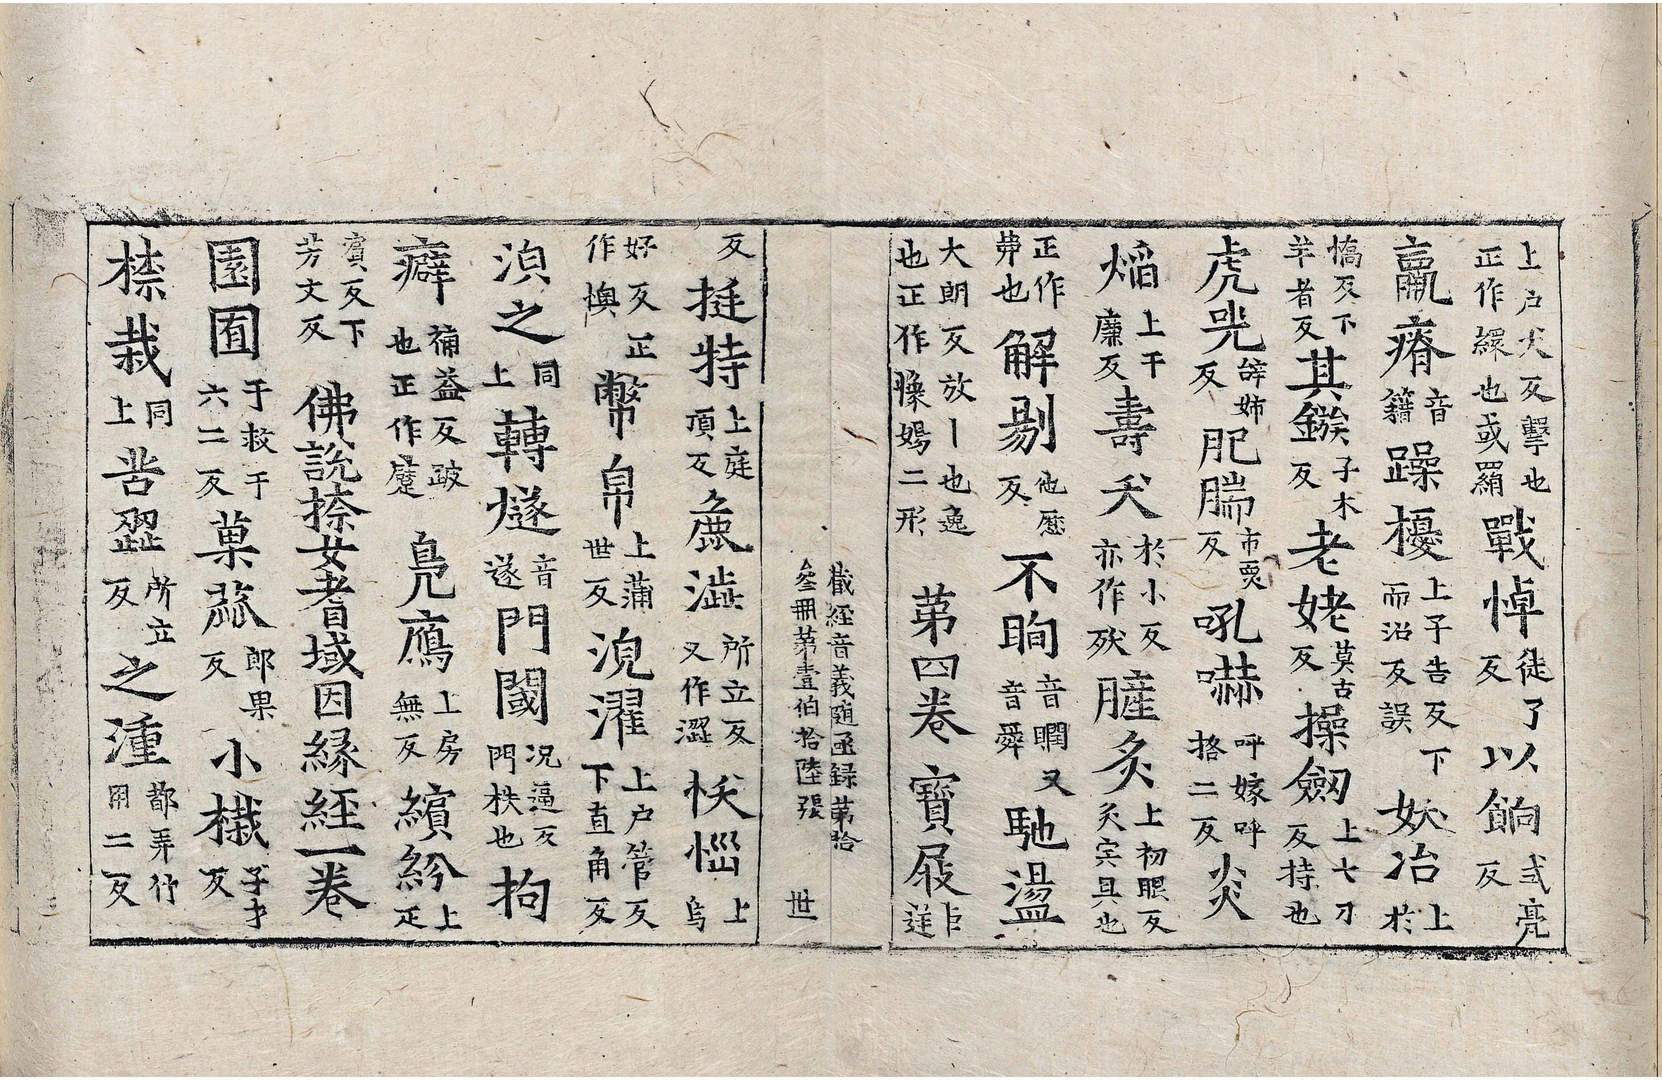 上户犬反擊也正作繯也或羂戰悼徒了反以餉式亮反
羸瘠音籍躁擾上子告反下而沼反誤妖冶上於
憍反下羊者反其鏃子木反老姥莫古反操劔上七刀反持也
虎兕辞姉反肥腨市耎反吼嚇呼嫁呼挌二反炎
焔上干廉反壽夭於小反亦作殀䐮炙上初眼反炙宍具也
正作丳也解剔他歷反不眴音瞤又音舜馳盪
大朗反放丨也逸也正作𢠽婸二形第四卷寶屐巨逆
藏經音義随函録第拾
叄冊第壹伯拾陸張 世
反挺特上庭頂反麁澁所立反又作澀㤇惱上烏
好反正作懊幣帛上蒲世反浣濯上户管反下直角反
湏之同上轉燧音遂門閾况逼反門柣也拘
癖補益反跛也正作躄鳧鴈上房無反繽紛上疋
賓反下芳文反佛說㮈女耆域因緣經一卷
園囿于救于六二反菓蓏郎果反小栽子才反
㮈栽同上苦澀所立反之湩都弄竹用二反